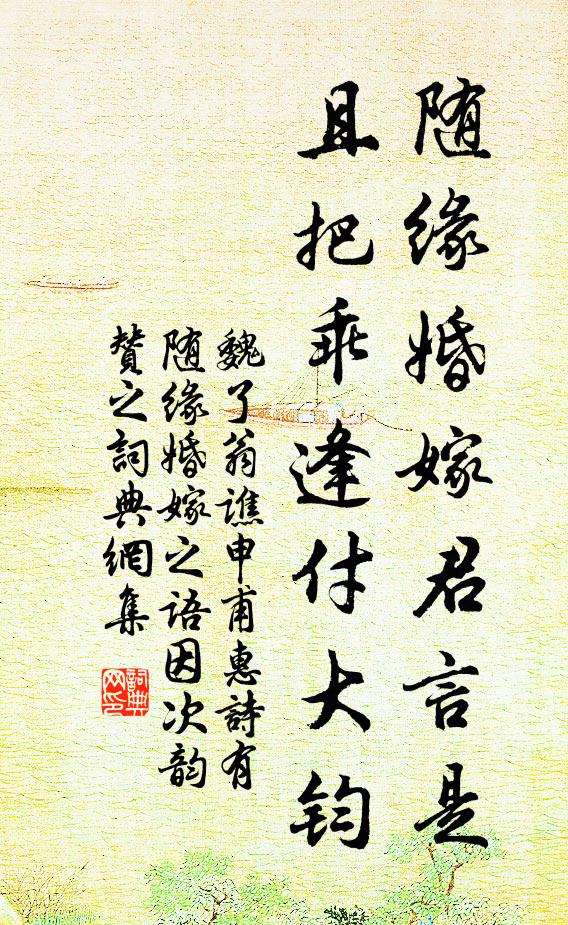 随缘婚嫁君言是
且把乖逢付大钧
魏了翁谯申甫惠詩有
随缘婚嫁之语因次韵
贊之詞典網集
詞典
网印